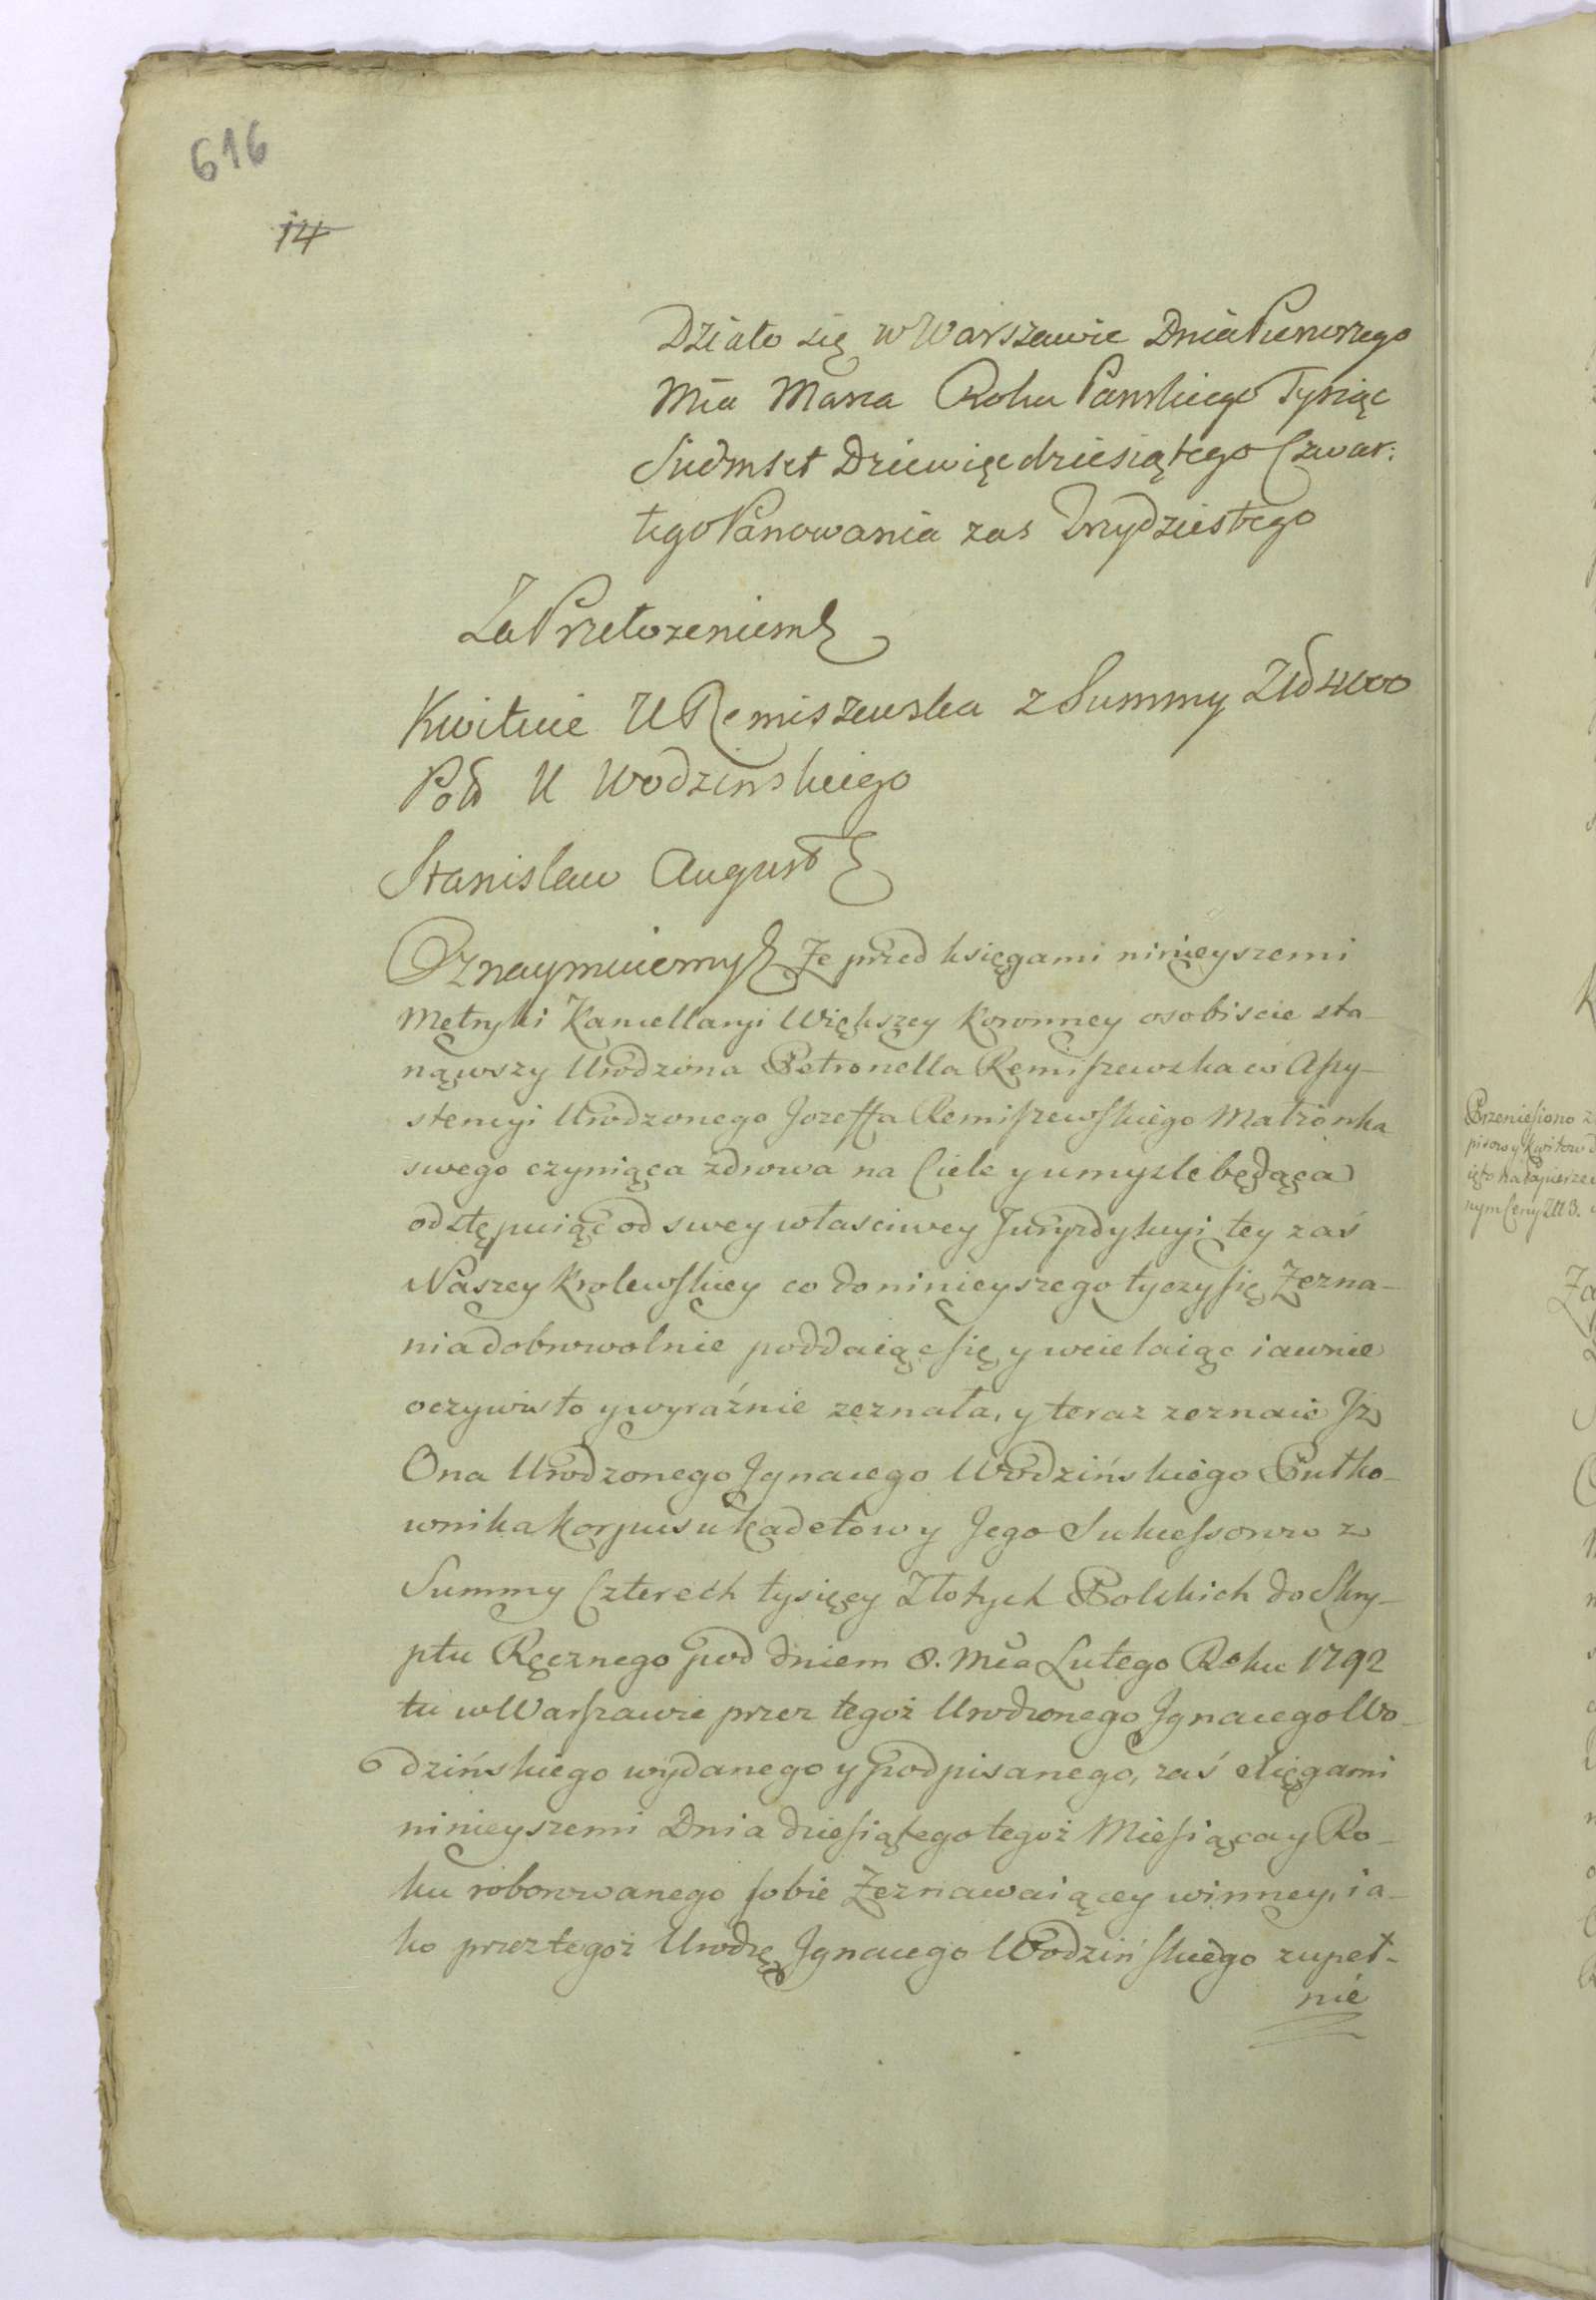 616
14
Działo się w Warszawie Dnia Pierwszego
Mca Marca Roku Pańskiego Tysiąc
Siedmset Dziewięćdziesiątego Czwar:
tego Panowania zas Trzydziestego
Za Przełozeniem
Kwituie U Remiszewska z Summy Zł 4000
U Wodzinskiego
Stanislaw August
Oznaymuiemy Że przed księgami ninieyszemi
Metryki Kancellaryi Większey Koronney osobiscie sta-
nąwszy Urodzona Petronella Remiszewska w Assy-
stencyi Urodzonego Jozeffa Remiszewskiego Małżonka
swego czyniąca zdrowa na Ciele y umyzle będąca
odstępuiąc od swey własciwey Juryzdykcyi tey zaś
Naszey Krolewskiey co do ninieyszego tyczy się Zezna-
nia dobrowolnie poddaiąc się y wcielaiąc iawnie
oczywisto y wyraźnie zeznała, y teraz zeznaie Jż
Ona Urodzonego Jgnacego Wodzińskiego Pułko-
wnika Korpusu Kadetow y Jego Sukcessorow z
Summy Czterech tysięcy Złotych Polskich do Skry-
ptu Ręcznego pod dniem 8. Mca Lutego Roku 1792
tu w Warszawie przez tegoż Urodzonego Jgnacego Wo-
dzińskiego wydanego y podpisanego, zaś xięgami
ninieyszemi Dnia dziesiątego tegoż Miesiąca y Ro-
ku roborowanego sobie Zeznawaiącey winney, ia-
ko przez tegoż Urodzę Jgnacego Wodzińskiego zupeł-
nie
Przeniesiono z